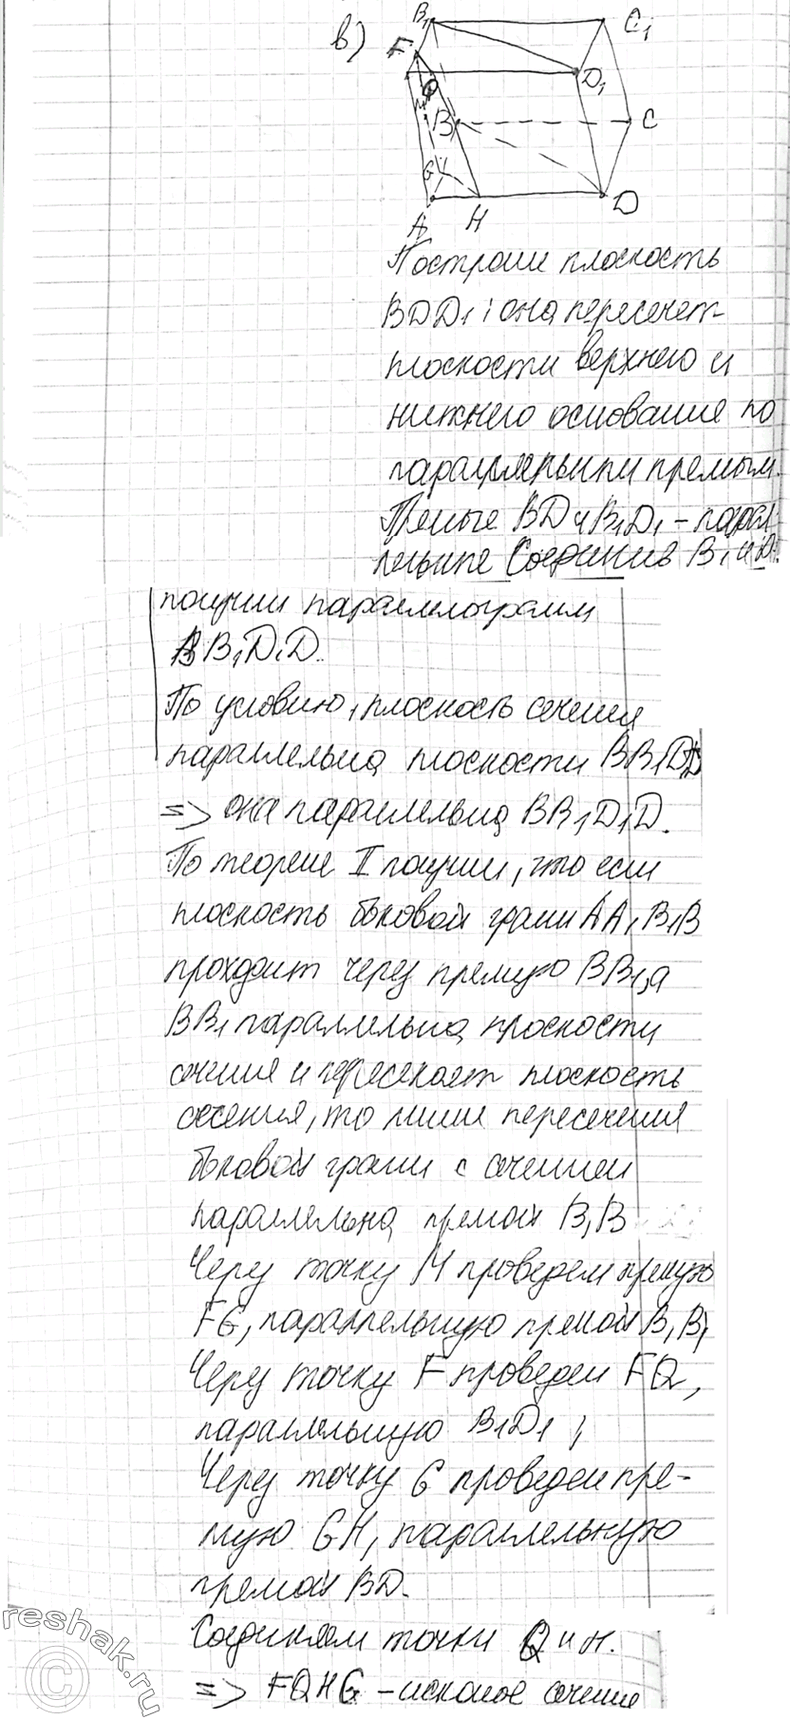 в)
B₁ C₁
F
Q D₁
M
B C
G
A H D
Построим плоскость
BDD₁; она пересечет
плоскости верхнего и
нижнего основание по
параллельным прямым.
BD и B₁D₁ – парал-
лельные Соединив B₁ и D₁
получим параллелограмм
BB₁D₁D.
По условию, плоскость сечения
параллельна плоскости BB₁D₁D
=> она параллельна BB₁D₁D.
По теореме II получим, что если
плоскость боковой грани AA₁B₁B
проходит через прямую BB₁, а
BB₁ параллельна плоскости
сечения и пересекает плоскость
сечения, то линия пересечения
боковой грани с сечением
параллельна прямой B₁B
Через точку M проведем прямую
FG, параллельную прямой B₁B;
Через точку F проведем FQ,
параллельную B₁D₁;
Через точку G проведем пря-
мую GH, параллельную
прямой BD.
Соединяем точки Q и H.
=> FQHG – искомое сечение
reshak.ru
©